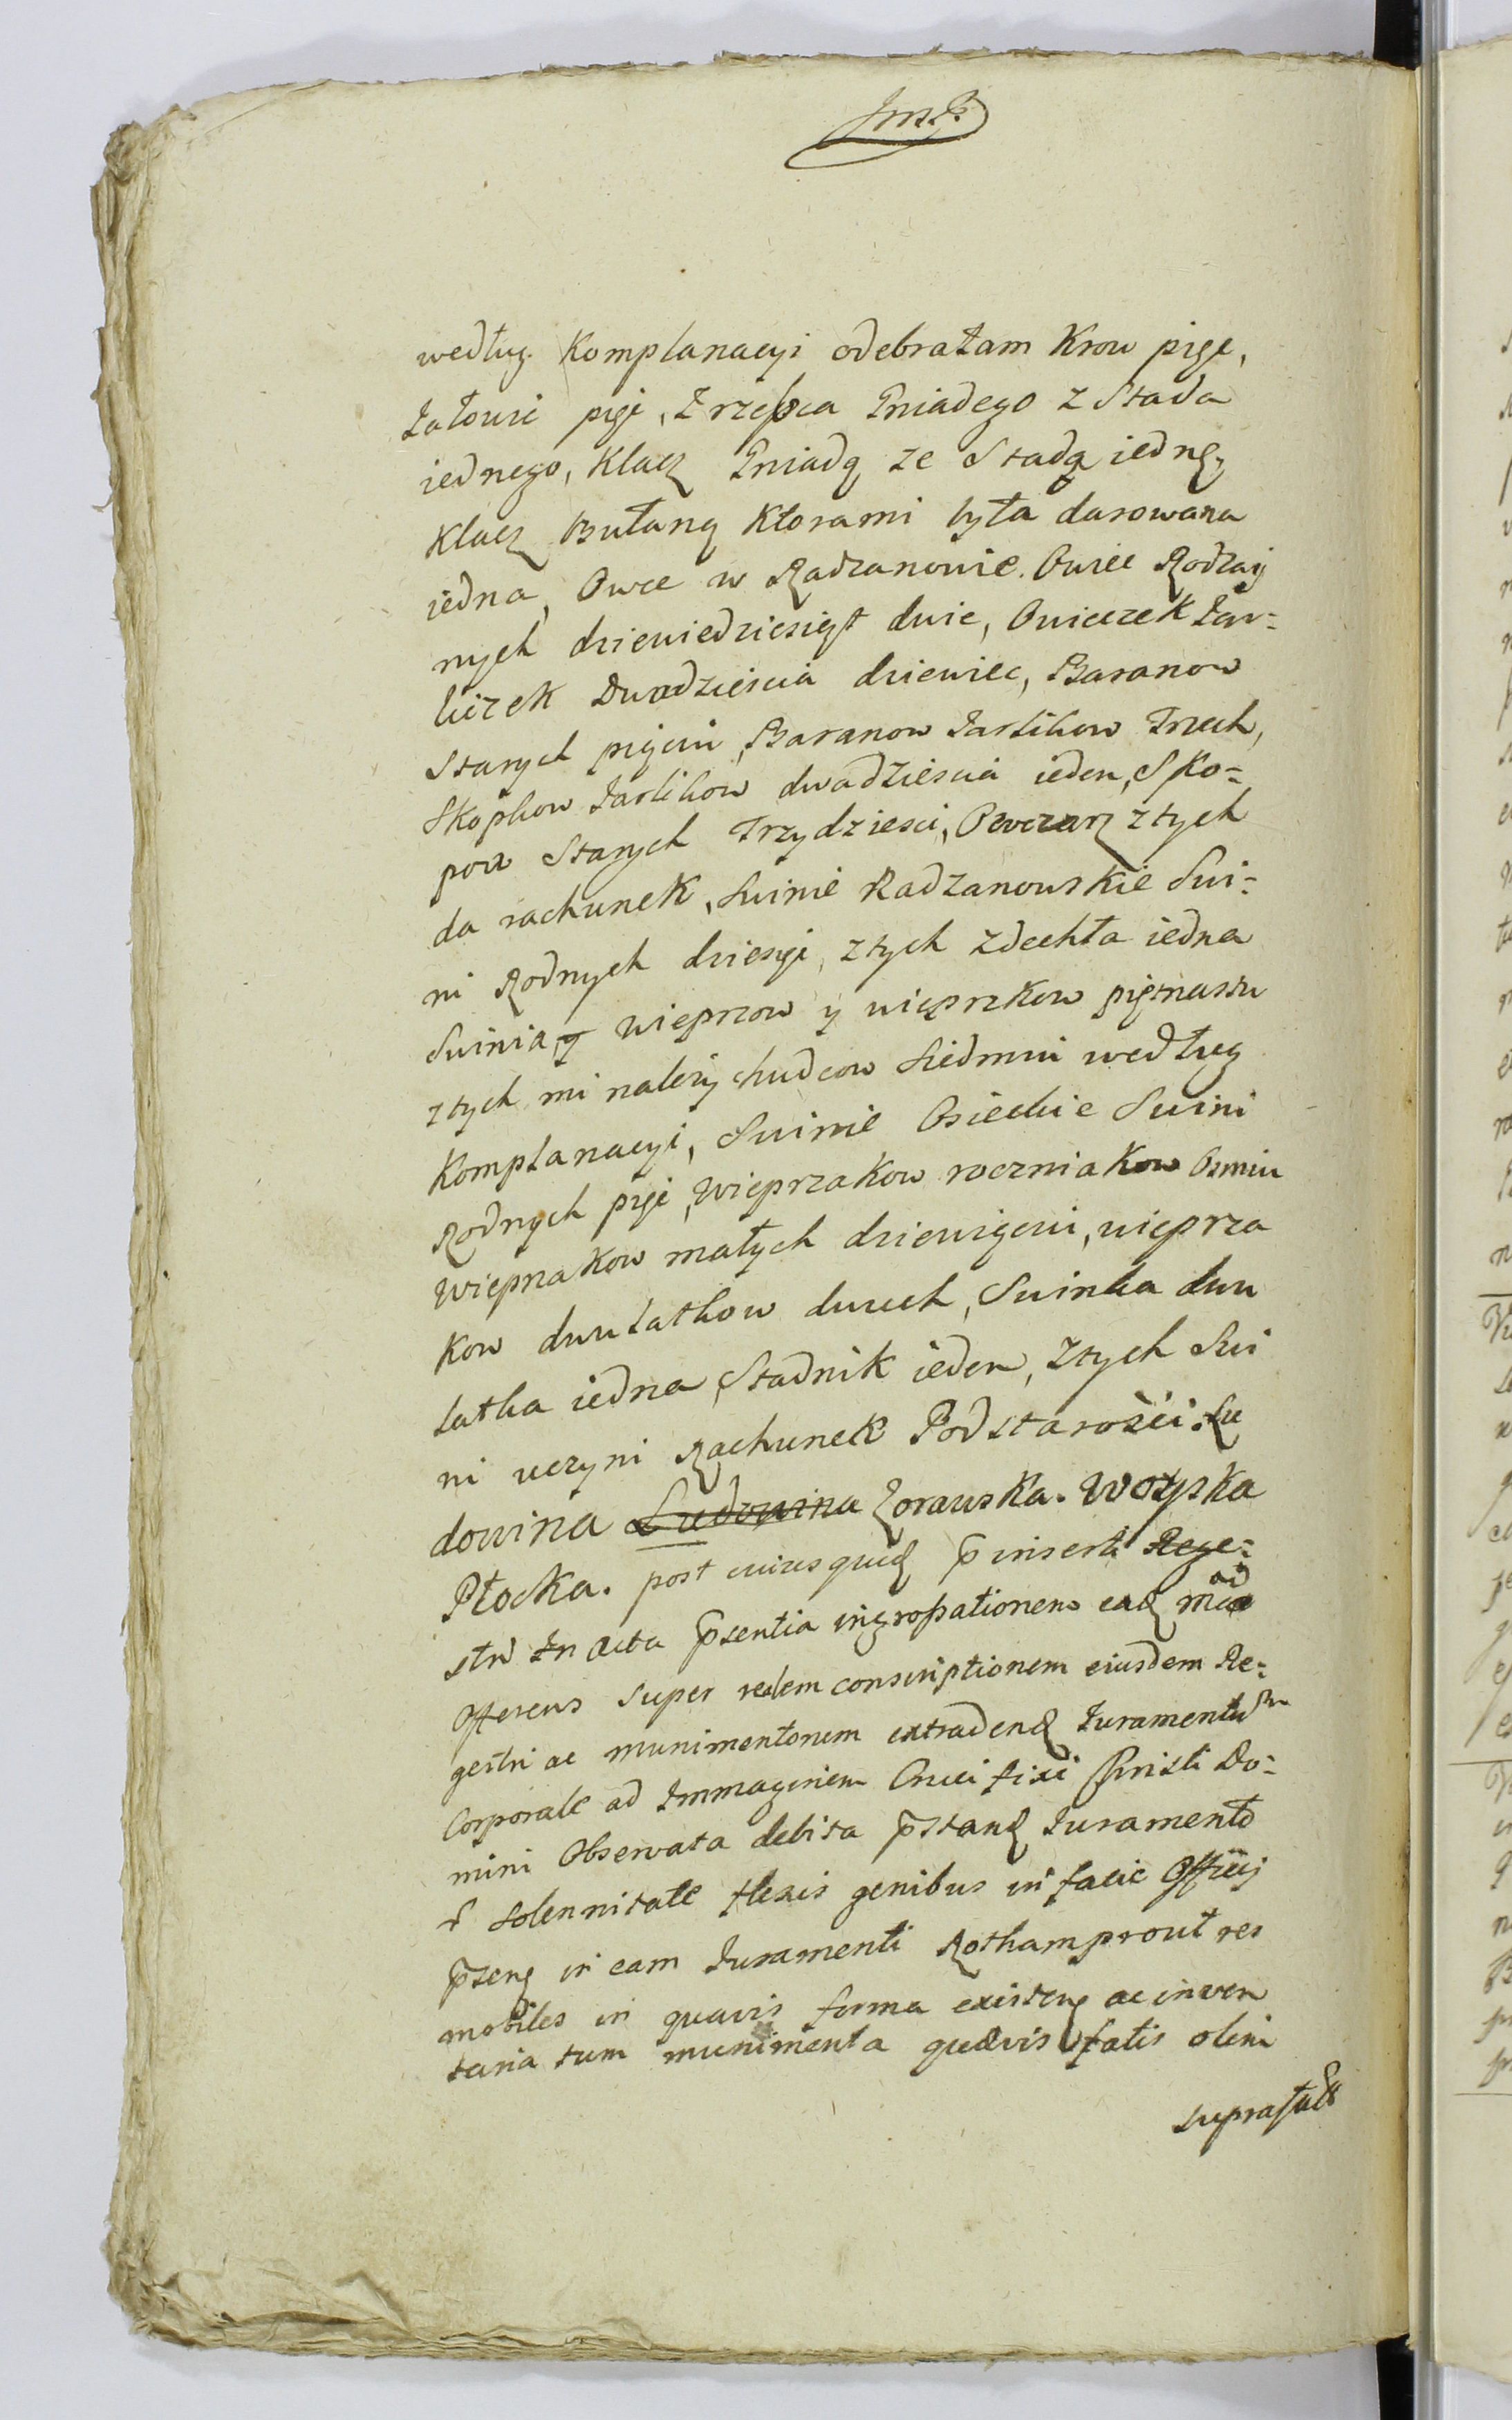 według Komplanacyi odebrałam Krow pięc,
Jałowic pięc, Zrzebca Gniadego z Stada
iednego, Klacz Gniadą ze Stada iednę,
Klacz Bułaną Ktorami była darowana
iedna, Owce w Radzanowie. Owiec Rodzaÿ
nych dziewiedziesięt dwie, Owieczek Jar=
liczek Dwadziescia dziewiec, Baranow
Starych pięciu, Baranow Jarlikow Trzech,
Skopkow Jarlikow dwadziescia ieden, Sko=
pow Starych Trzydziesci, Owczarz ztych
da rachunek, Swinie Radzanowskie Swi=
ni Rodnych dziesięc, ztych zdechła iedna
Swinia, y wieprzow y wieprzkow pietnastu
ztych mi należy chudcow Siedmiu według
Komplanacyi, Swinie Osieckie Swini
Rodnych pięc, Wieprzakow roczniakow Osmiu
Wieprzakow małych dziewięciu, wieprza
kow dwulatkow dwuch, Swinka dwu
latka iedna, Stadnik ieden, Ztych Swi
ni uczyni Rachunek Podstarosci. Lu
dowina Ludowina Zorawska. Woyska
Płocka. post cuius quid p̄inserti Rege=
stri In Acta p̄sentia ingrossationem ead mad
Offerens super realem conscriptionem eiusdem Re=
gestri ac munimentorum extradend Juramentum
Corporale ad Immaginem Crucifixi Christi Do=
mini Observata debita p̄stand Juramento
r̄ Solennitate flexis genibus in facie Officij
p̄sens in eam Juramenti Rotham prout res
mobiles in quavis forma existens ac inven
taria tum munimenta quævis fatis olim